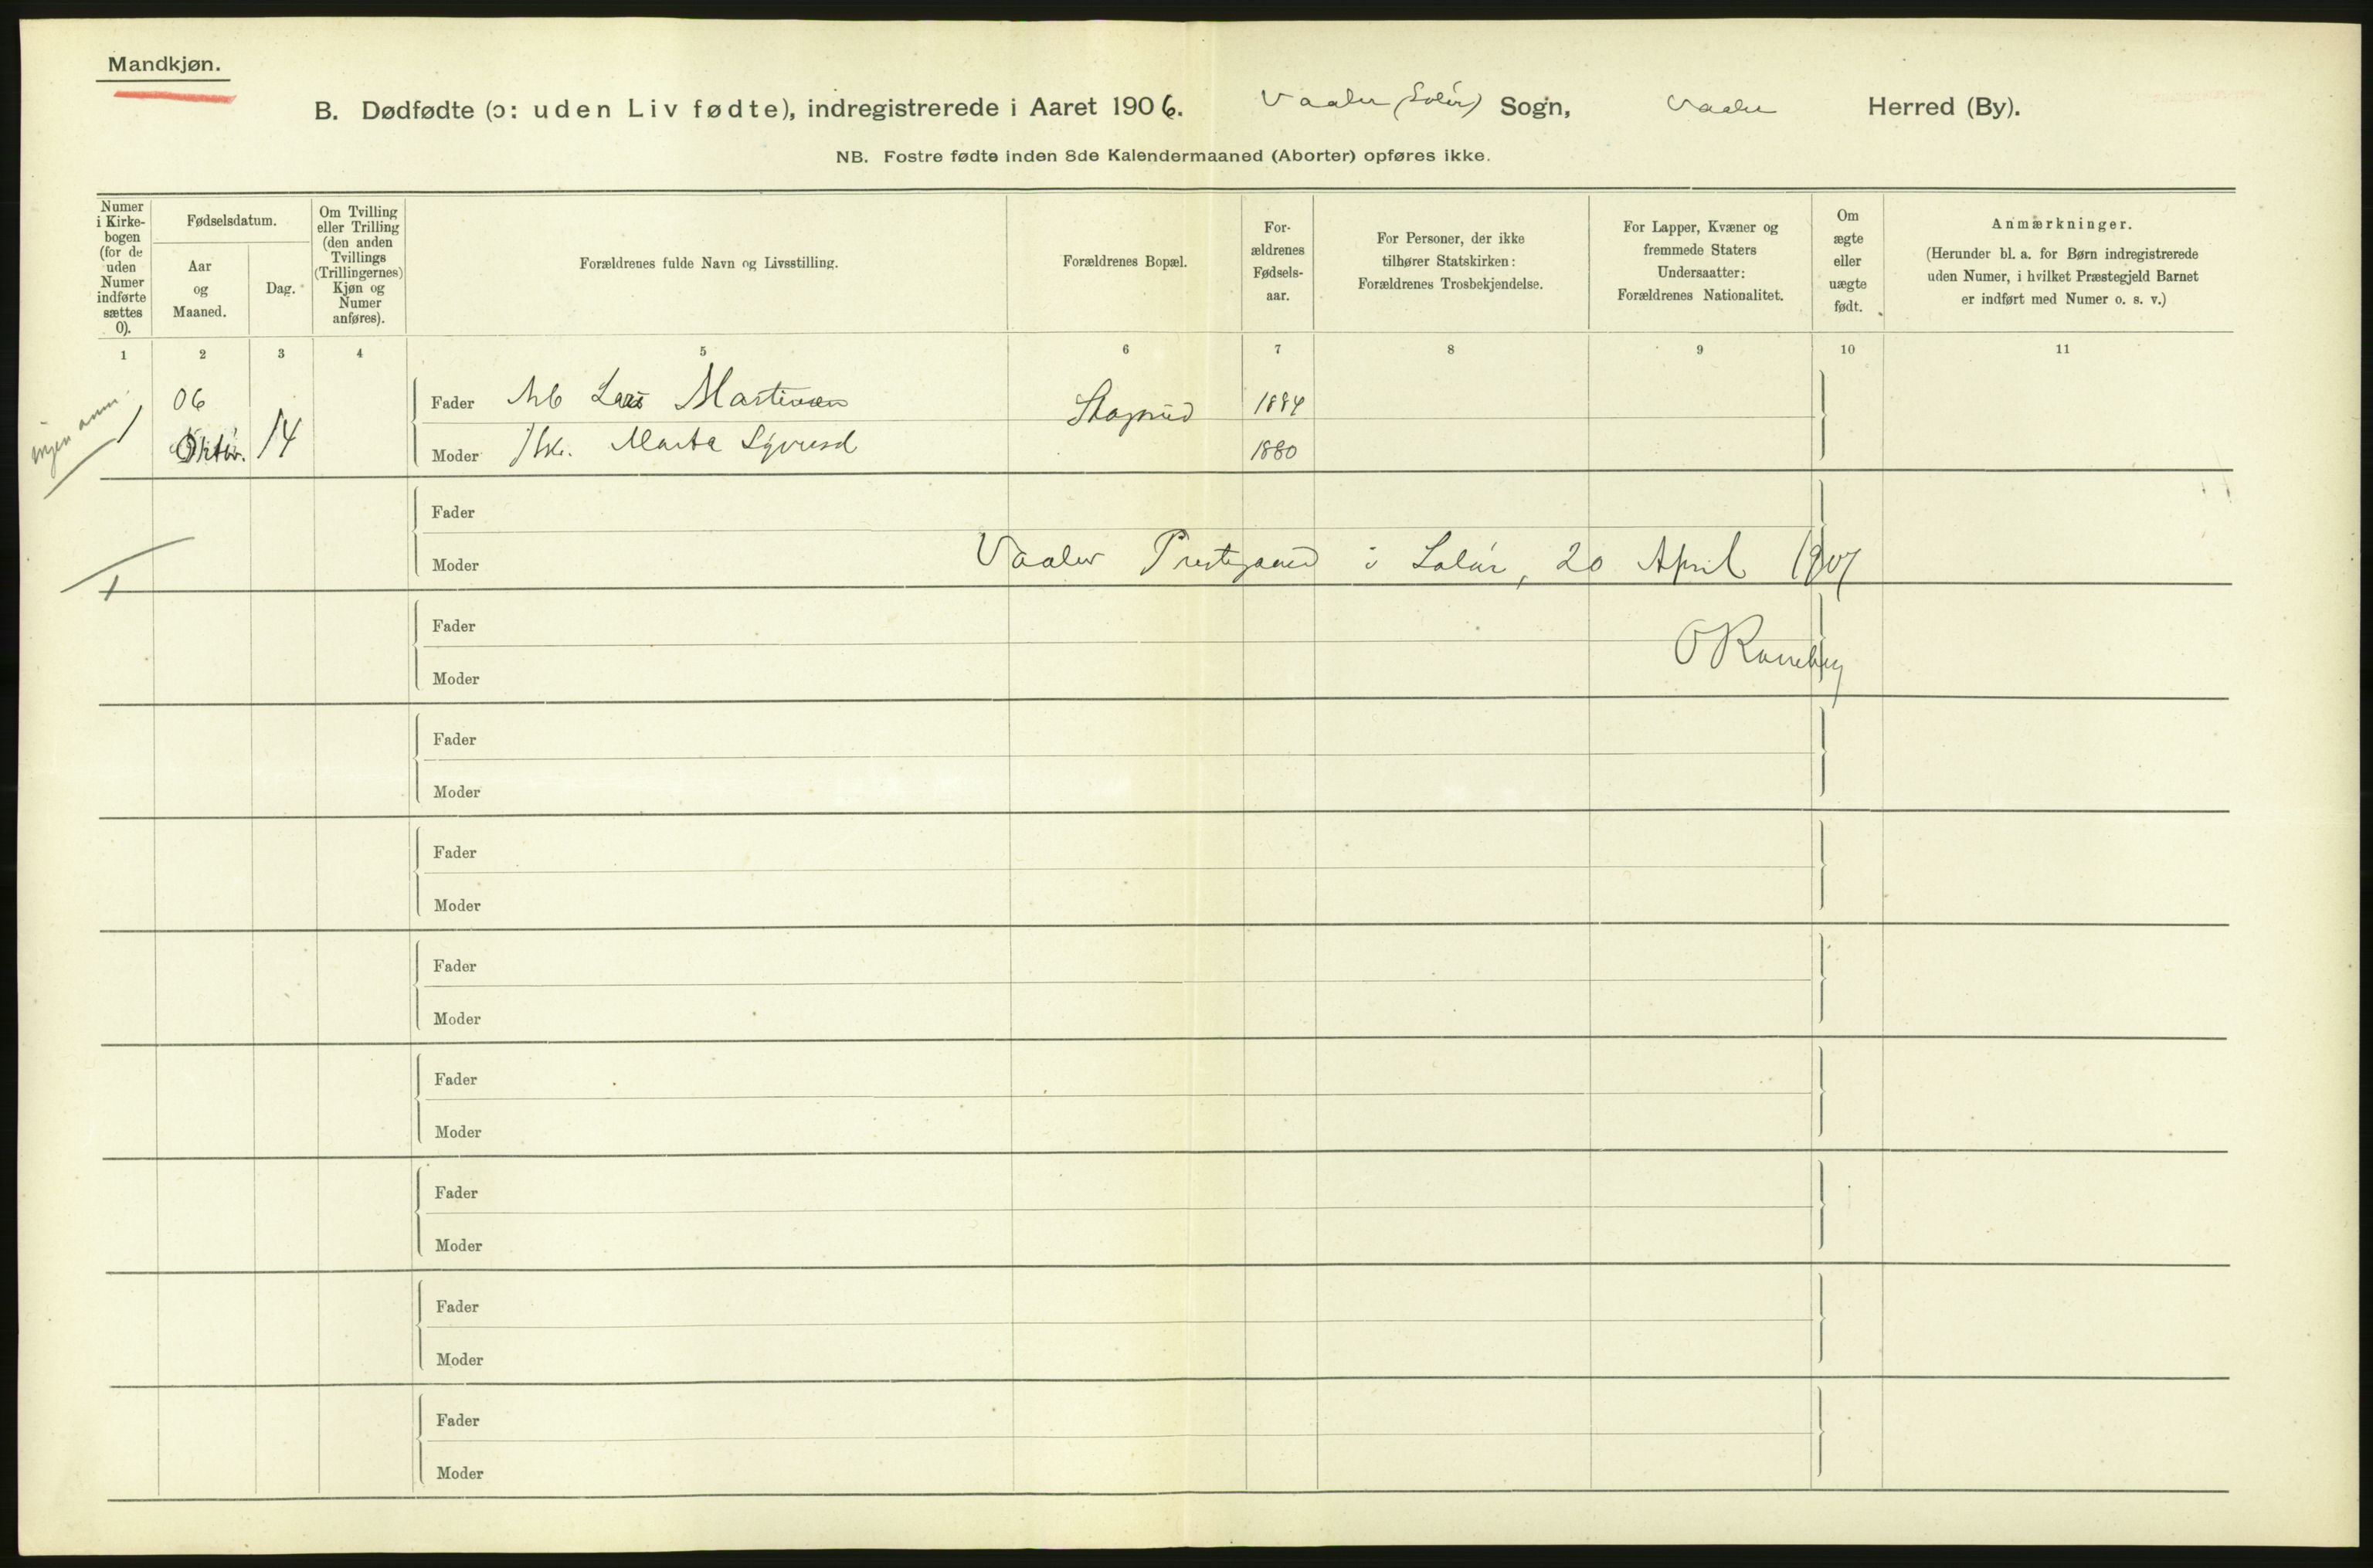 Mandkjøn.
B. Dødfødte (ɔ: uden Liv fødte), indregistrerede i Aaret 1906. Vaaler (Solør) Sogn, Vaaler Herred (By).
NB. Fostre fødte inden 8de Kalendermaaned (Aborter) opføres ikke.
Numer
i Kirke-
bogen
(for de
uden
Numer
indførte
sættes
0).
Fødselsdatum.
Aar
og
Maaned.
Dag.
Om Tvilling
eller Trilling
(den anden
Tvillings
(Trillingernes)
Kjøn og
Numer
anføres).
Forældrenes fulde Navn og Livsstilling.
Forældrenes Bopæl.
For-
ældrenes
Fødsels-
aar.
For Personer, der ikke
tilhører Statskirken:
Forældrenes Trosbekjendelse.
For Lapper, Kvæner og
fremmede Staters
Undersaatter:
Forældrenes Nationalitet.
Om
ægte
eller
uægte
født.
Anmærkninger.
(Herunder bl. a. for Børn indregistrerede
uden Numer, i hvilket Præstegjeld Barnet
er indført med Numer o. s. v.)
1 2 3 4 5 6 7 8 9 10 11
ingen anm.
1 06 Oktbr. 14
Fader Lars Martinsen 1884
Moder Marte 1880
Fader
Moder Vaaler Prestegaard i Solør, 20 April 1907
1
Fader
Moder
Fader
Moder
Fader
Moder
Fader
Moder
Fader
Moder
Fader
Moder
Fader
Moder
Fader
Moder